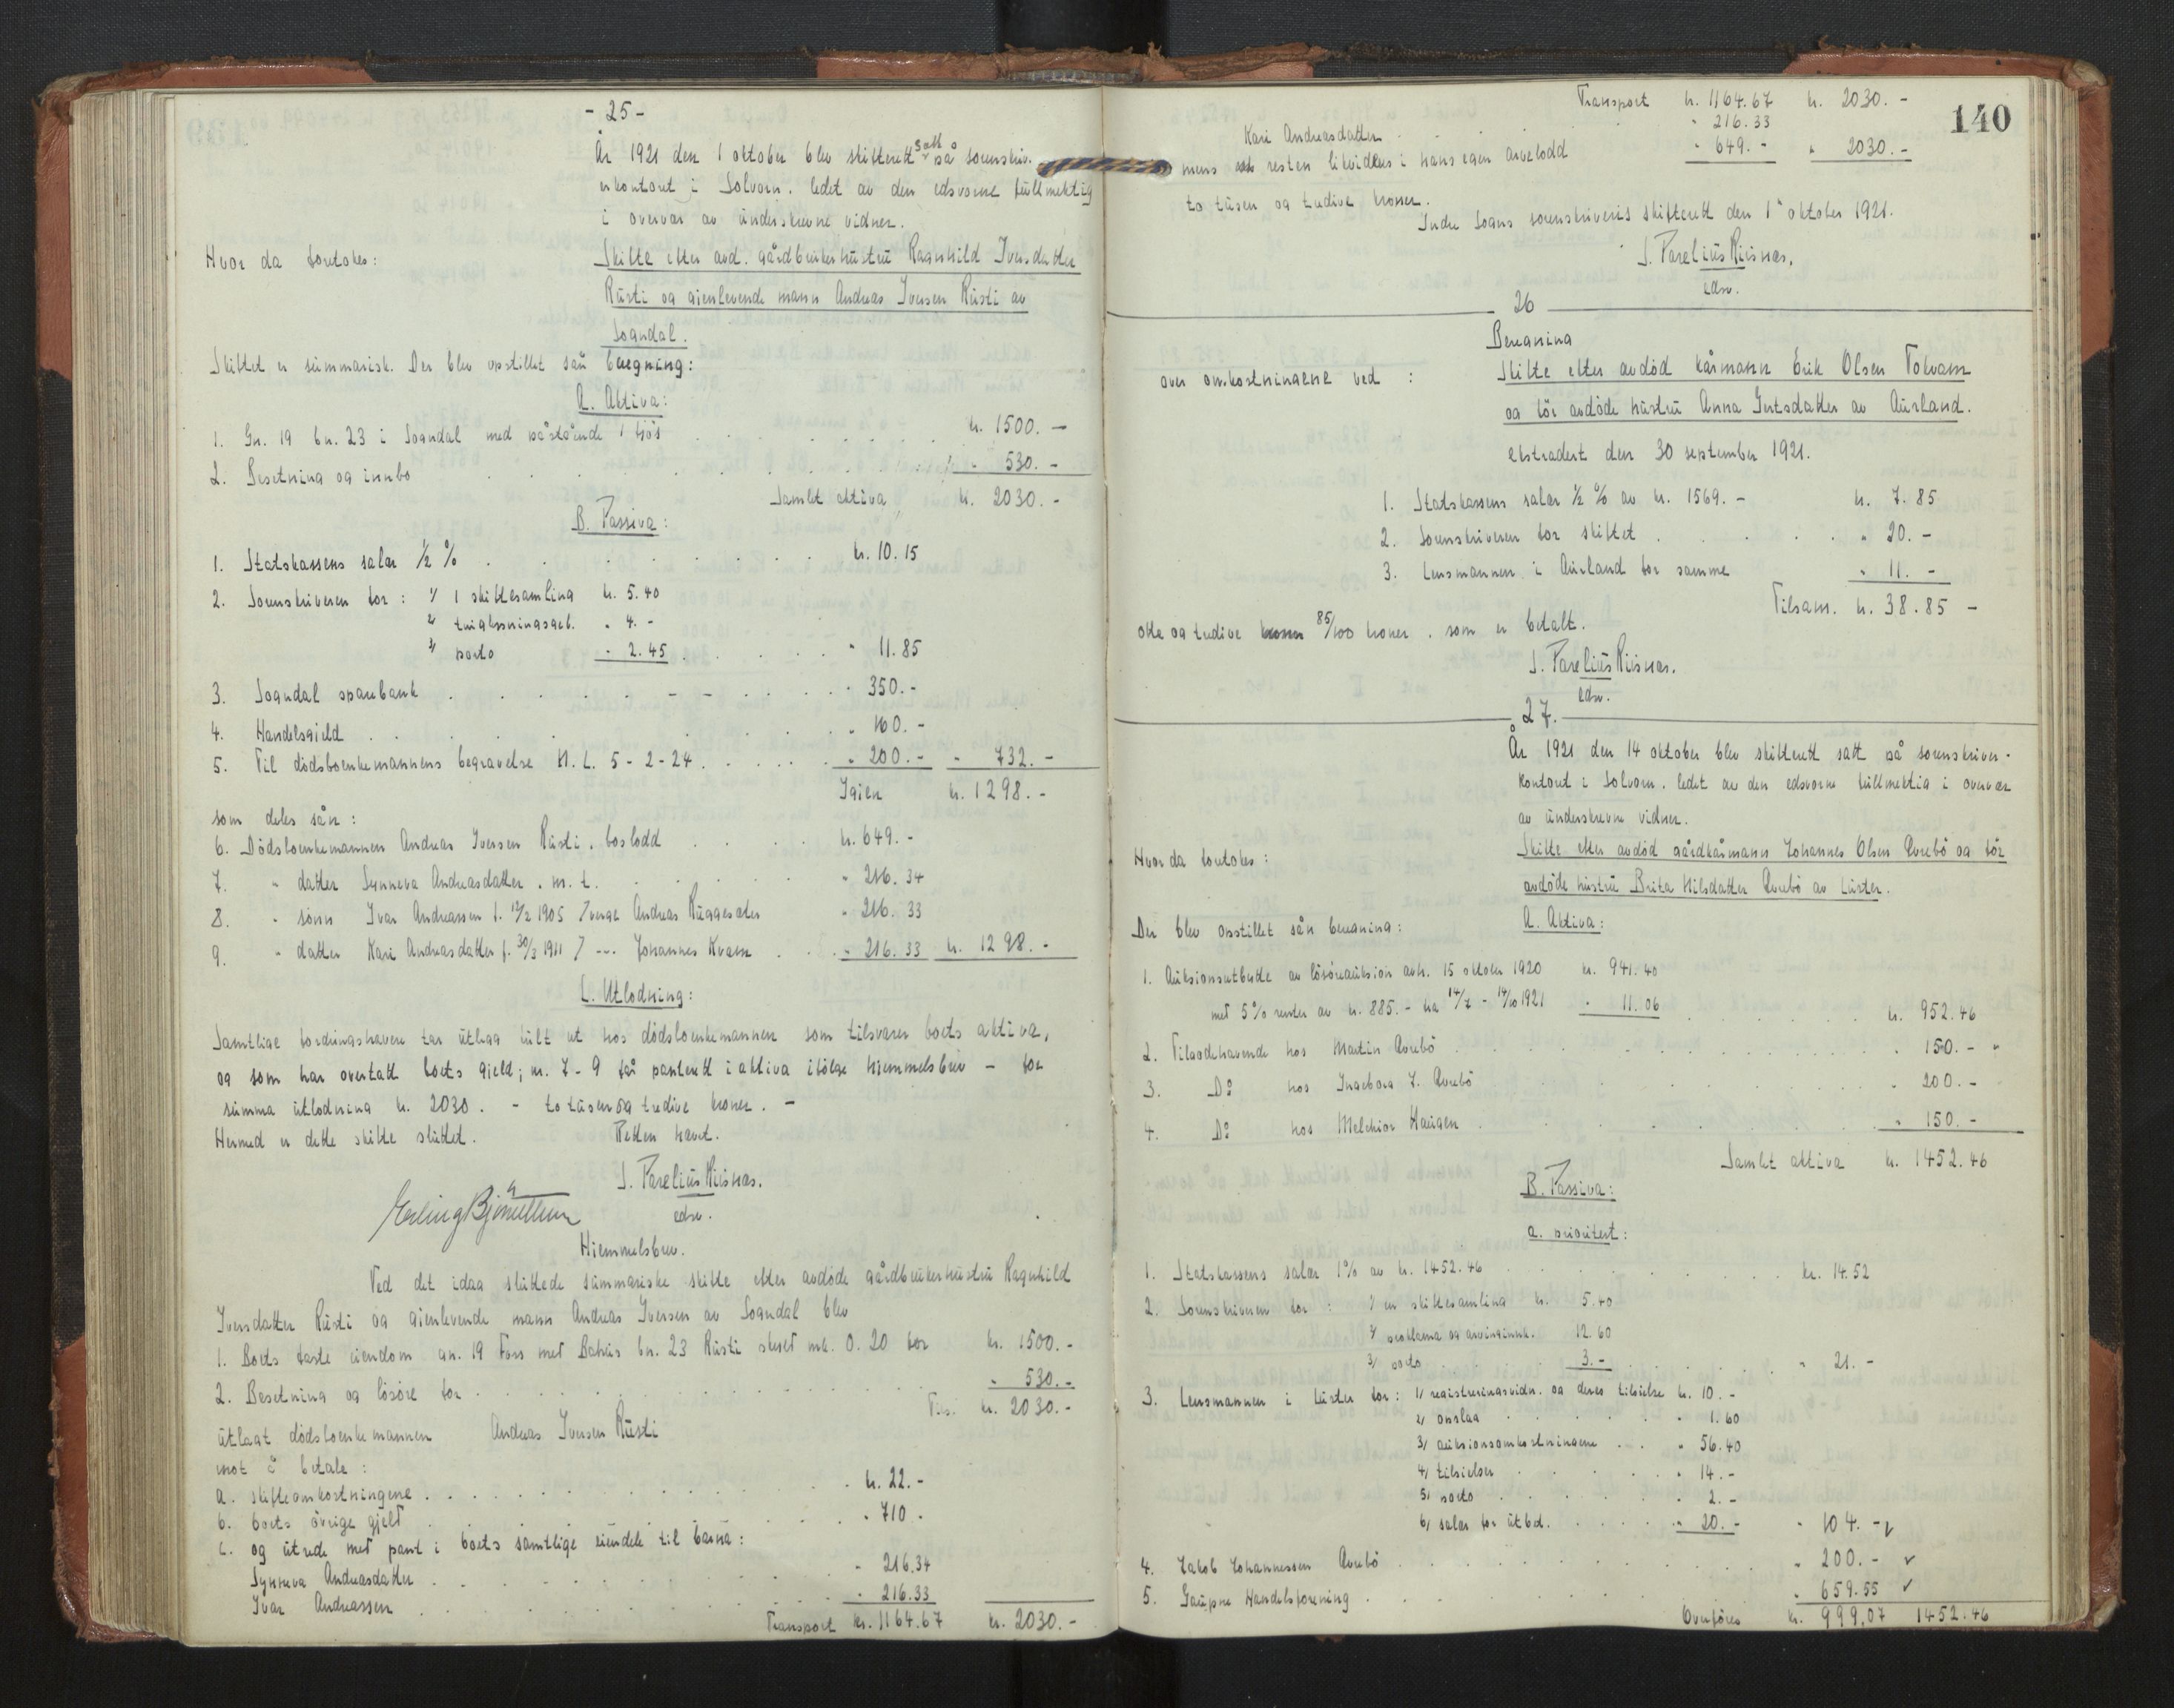 - 25 -
År 1921 den 1 oktober blev skifterett satt på sorenskriv-
erkontoret i Solvorn, ledet av den edsvorne fullmektig
i overvær av underskrevne vidner.
Hvor da foretokes:
Skifte efter avd. gårdbrukerhustru Ragnhild Iversdatter
Rusti og gjenlevende mann Andreas Iversen Rusti av
Sogndal.
Skiftet er summarisk. Der blev opstillet sån beregning:
A. Aktiva:
1. Gn. 19 bn. 23 i Sogndal med påstående 1 fjös . . . kr. 1500. -
2. Besetning og innbo . . . " 530. -
Samlet aktiva, kr. 2030. -
B. Passiva:
1. Statskassens salær ½ % . . . kr. 10.15
2. Sorenskriveren for: 1/ 1 skiftesamling kr. 5.40
2/ tinglesningsgeb. " 4. -
3/ porto " 2.45 . . . " 11.85
3. Sogndal sparebank . . . " 350. -
4. Handelsgjeld . . . " 160. -
5. Til dödsboenkemannens begravelse N. L. 5-2-24 . . . " 200. - " 732. -
Igjen kr. 1298. -
som deles sån:
6. Dödsboenkemannen Andreas Iversen Rusti, boslodd . . . kr. 649. -
7. " datter Synneva Andreasdatter, m. t. . . . " 216.34
8. " sönn Ivar Andreassen f. 12/2 1905 / verge Andreas Ruggesæter " 216.33
9. " datter Kari Andreasdatter f. 30/3 1911 / --- Johannes Kvam . . . " 216.33 kr. 1298. -
C. Utlodning:
Samtlige fordringshavere får utlegg fullt ut hos dödsboenkemannen som tilsvarer boets aktiva,
og som har overtatt boets gjeld; nr. 7-9 får panterett i aktiva ifölge hjemmelsbrev - for
summa utlodning kr. 2030. - totusen og tredive kroner. -
Hermed er dette skifte sluttet. Retten hævet.
J. Parelius Riisnæs.
edsv.
Erling Bjönettun
Hjemmelsbrev.
Ved det idag sluttede summariske skifte efter avdöde gårdbrukerhustru Ragnhild
Iversdatter Rusti og gjenlevende mann Andreas Iversen av Sogndal blev
1. Boets faste eiendom gn. 19 Foss met Bahus bn. 23 Rusti skyld mk. 0.20 for kr. 1500. -
2. Besetning og lösöre for . . . " 530. -
Tils. kr. 2030. -
utlagt dödsboenkemannen Andreas Iversen Rusti
mot å betale:
a. skifteomkostningene . . . kr. 22. -
b. boets övrige gjeld . . . " 710. -
c. og utrede met pant i boets samtlige eiendele til barna:
Synneva Andreasdatter . . . " 216.34
Ivar Andreassen . . . " 216.33
Transport kr. 1164.67 kr. 2030. -
140
Transport kr. 1164.67 kr. 2030. -
Kari Andreasdatter . . . " 216.33
mens resten likvideres i hans egen arvelodd " 649. - " 2030. -
to tusen og tredive kroner.
Indre Sogns sorenskriveris skifterett den 1 oktober 1921.
J. Parelius Riisnæs.
edsv.
26
Beregning
over omkostningene ved:
Skifte efter avdöd kårmann Erik Olsen Tokvam
og för avdöde hustru Anna Gertsdatter av Aurland.
ekstradert den 30 september 1921.
1. Statskassens salær ½ % av kr. 1569. - kr. 7.85
2. Sorenskriveren for skiftet . . . " 20. -
3. Lensmannen i Aurland for samme " 11. -
Tilsam. kr. 38.85 -
otte og tredive 85/100 kroner, som er betalt.
J. Parelius Riisnæs.
edsv.
27.
År 1921 den 14 oktober blev skifterett satt på sorenskriver-
kontoret i Solvorn, ledet av den edsvorne fullmektig i overvær
av underskrevne vidner.
Hvor da foretokes:
Skifte efter avdöd gårdkårmann Johannes Olsen Kvebö og för
avdöde hustru Brita Nilsdatter Kvebö av Luster.
Der blev opstillet sån beregning:
A. Aktiva:
1. Auksionsutbytte av lösöreauksion avh. 15 oktober 1920 kr. 941.40
met 5% renter av kr. 885. - fra 14/7 - 14/10 1921 " 11.06 . . . kr. 952.46
2. Tilgodehavende hos Martin Kvebö . . . " 150. - "
3. Do hos Ingeborg J. Kvebö . . . " 200. -
4. Do hos Melchior Haugen . . . " 150. -
Samlet aktiva kr. 1452.46
B. Passiva:
a. prioritert:
1. Statskassens salær 1% av kr. 1452.46 . . . kr. 14.52
2. Sorenskriveren for: 1/ en skiftesamling kr. 5.40
2/ proklama og arvinginnk. 12.60
3/ porto . . . 3. - . . . " 21. -
3. Lensmannen i Luster for: 1/ registreringsvidn. og deres tilsikelse kr. 10. -
2/ opslag . . . " 1.60
3/ auksionsomkostningene . . . " 56.40
4/ tilsielser . . . " 14. -
5/ porto . . . " 2. -
6/ salær for utbd. . . . " 20. - " 104. - ✓
4. Jakob Johannessen Kvebö . . . " 200. - ✓
5. Gaupne Handelsforening . . . " 659.55 ✓
Overföres kr. 999.07 1452.46